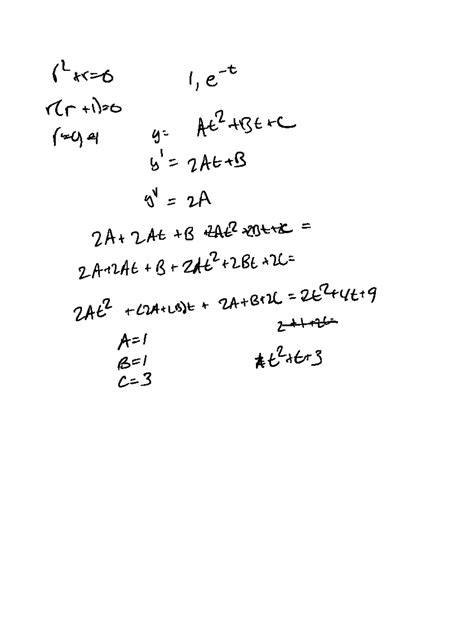 r²+r=0
1, e^-t
r(r+1)=0
r=0,-1
y= At²+Bt+C
y' = 2At+B
y'' = 2A
2A+2At+B+2At²+2Bt+2C =
2A+2At+B+2At²+2Bt+2C=
2At² +(2A+2B)t + 2A+B+2C = 2t²+4t+9
2+1+2C=
A=1
B=1
t²+t+3
C=3